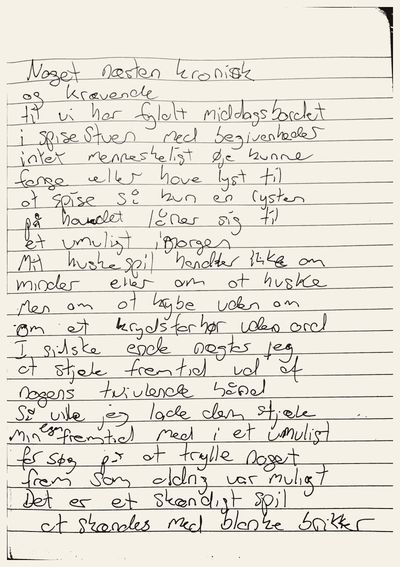 Noget næsten kronisk
og krævende
til vi har fyldt middagsbordet
i spisestuen med begivenheder
intet menneskeligt øje kunne
fange eller have lyst til
at spise Så kun en rysten
på hovedet låner sig til
et umuligt imorgen
Mit huskespil handler ikke om
minder eller om at huske
Men om at købe uden om
om et krydsforhør uden ord
I sidste ende nægter jeg
at stjæle fremtid ud af
nogens tvivlende hånd
Så ville jeg lade dem stjæle
min egen fremtid med i et umuligt
forsøg på at trylle noget
frem som aldrig var muligt
Det er et skændigt spil
at skændes med blanke brikker